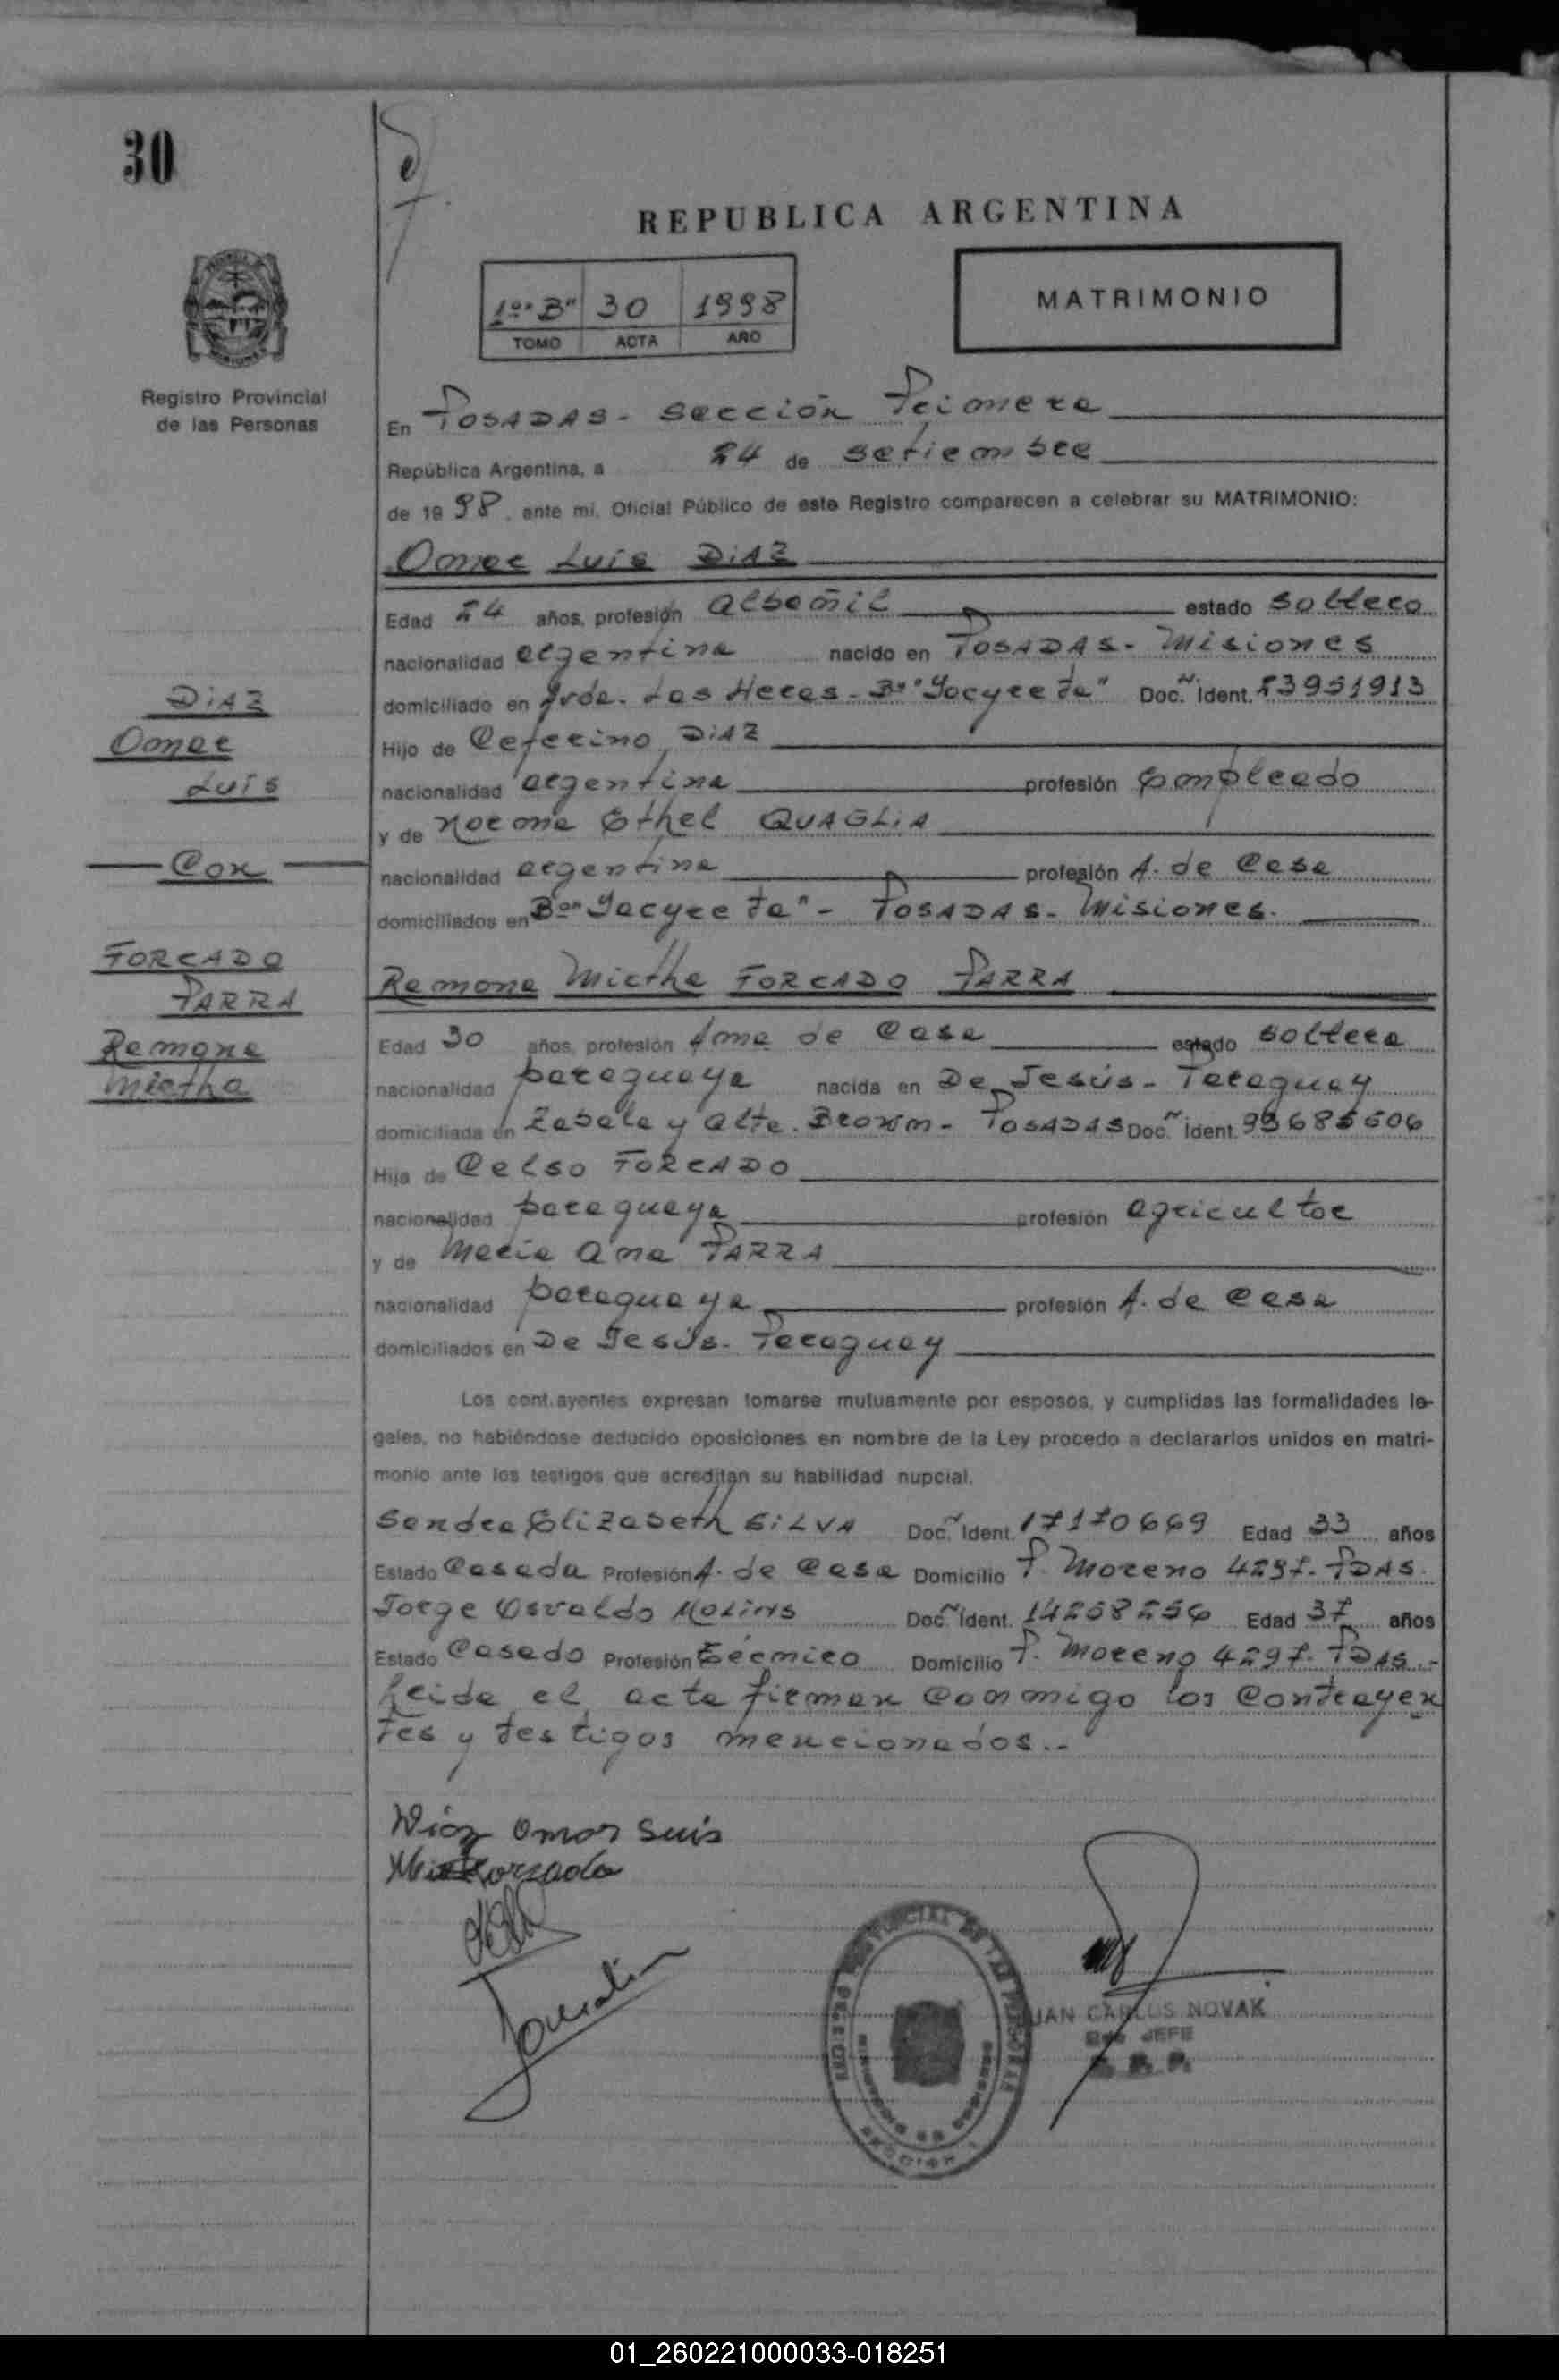 30
REPUBLICA ARGENTINA
1º "B" 30 1998
TOMO ACTA AÑO
MATRIMONIO
Registro Provincial
de las Personas
En POSADAS - Sección Primera
República Argentina, a 24 de Setiembre
de 1998, ante mi, Oficial Público de este Registro comparecen a celebrar su MATRIMONIO:
Omar Luis DiAZ
Edad 24 años, profesión albañil estado soltero
nacionalidad argentina nacido en POSADAS - Misiones
domiciliado en Avda. Las Heras - Bº "Yacyreta" Doc. Ident. 23951913
DiAZ
Omar
Luis
Hijo de Ceferino DiAZ
nacionalidad argentina profesión Empleado
y de Norma Ethel QUAGLiA
Con
nacionalidad argentina profesión A. de Casa
domiciliados en Bº "Yacyreta" - POSADAS - Misiones.
FORCADO
PARRA
Ramona
Mirtha
Ramona Mirtha FORCADO PARRA
Edad 30 años, profesión Ama de Casa estado soltera
nacionalidad paraguaya nacida en De Jesús - Paraguay
domiciliada en Zabala y Alte. Brown - POSADAS Doc. Ident.
Hija de Celso FORCADO
nacionalidad paraguaya profesión agricultor
y de María Ana PARRA
nacionalidad paraguaya profesión A. de Casa
domiciliados en De Jesús - Paraguay
Los contrayentes expresan tomarse mutuamente por esposos, y cumplidas las formalidades le-
gales, no habiéndose deducido oposiciones en nombre de la Ley procedo a declararlos unidos en matri-
monio ante los testigos que acreditan su habilidad nupcial.
Sandra Elizabeth SiLVA Doc. Ident. 17170669 Edad 33 años
Estado Casada Profesión A. de Casa Domicilio P. Moreno 4297 - PDAS.
Jorge Osvaldo MOLiNS Doc. Ident. 14258256 Edad 37 años
Estado Casado Profesión Técnico Domicilio P. Moreno 4297 - PDAS.-
Leida el acta firman conmigo los Contrayen
tes y testigos mencionados.-
Diaz Omar Luis
Forcado
JUAN CARLOS NOVAK
JEFE
01_260221000033-018251